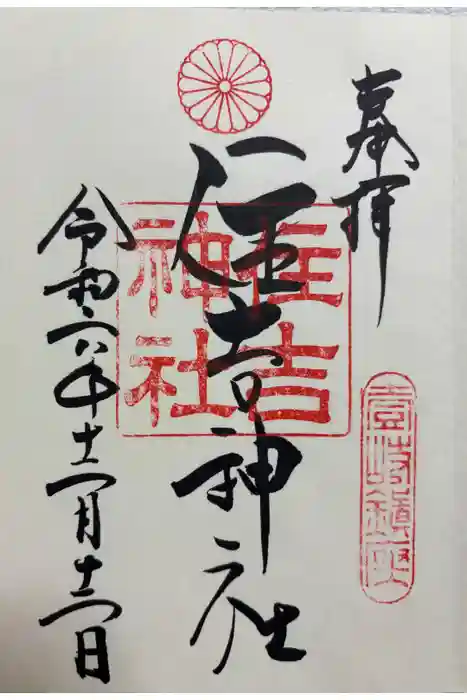 奉拝
壱岐鎮座
住吉神社
住吉
神社
令和六年十二月十六日